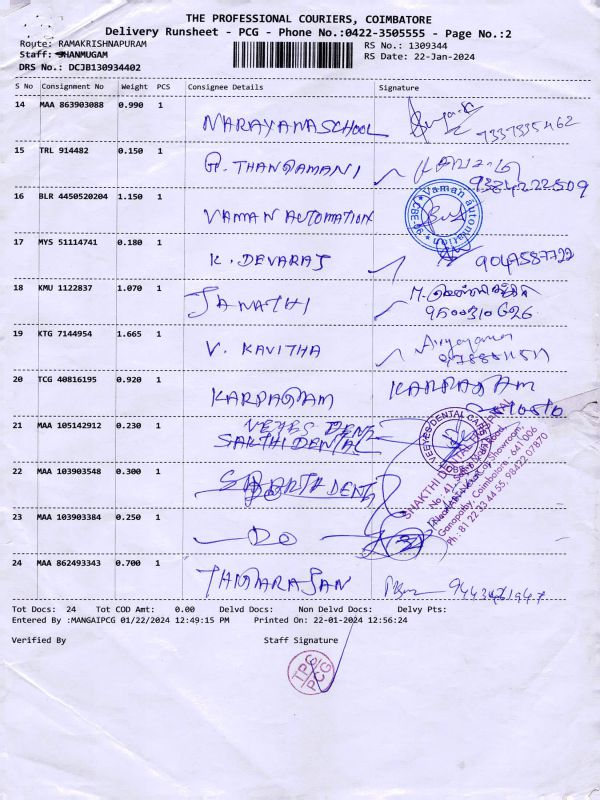 THE PROFESSIONAL COURIERS, COIMBATORE
Delivery Runsheet - PCG - Phone No.:0422-3505555 - Page No.:2
Route: RAMAKRISHNAPURAM
RS No.: 1309344
Staff: SHANMUGAM
RS Date: 22-Jan-2024
DRS No.: DCJB130934402
S No Consignment No Weight PCS Consignee Details Signature
14 MAA 863903088 0.990 1
NARAYANA SCHOOL
7337335462
15 TRL 914482 0.150 1
THANGAMANI
9384222509
16 BLR 4450520204 1.150 1
VAMAN AUTOMATION
Vaman automation
CBE-06
17 MYS 51114741 0.180 1
K. DEVARAJ
9047587722
18 KMU 1122837 1.070 1
JANATHI
9500310626
19 KTG 7144954 1.665 1
V. KAVITHA
20 TCG 40816195 0.920 1
KARPAGAM KARPAGAM
21 MAA 105142912 0.230 1
SAKTHI DENTAL
22 MAA 103903548 0.300 1
SAKTHI DENTAL
SHAKTHI DENTAL
Ganapathy, Coimbatore - 641 006
Ph : 81 22 33 44 55, 98422 07870
23 MAA 103903384 0.250 1
DO
24 MAA 862493343 0.700 1
THAMARASAN
Tot Docs: 24 Tot COD Amt: 0.00 Delvd Docs: Non Delvd Docs: Delvy Pts:
Entered By :MANGAIPCG 01/22/2024 12:49:15 PM Printed On: 22-01-2024 12:56:24
Verified By Staff Signature
TPC
PCG